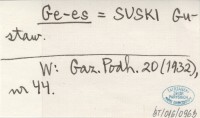 Ge-es = SUSKI Gu-
staw.
W: Gaz. Podh. 20 (1932),
nr 44.
bt/016/0968